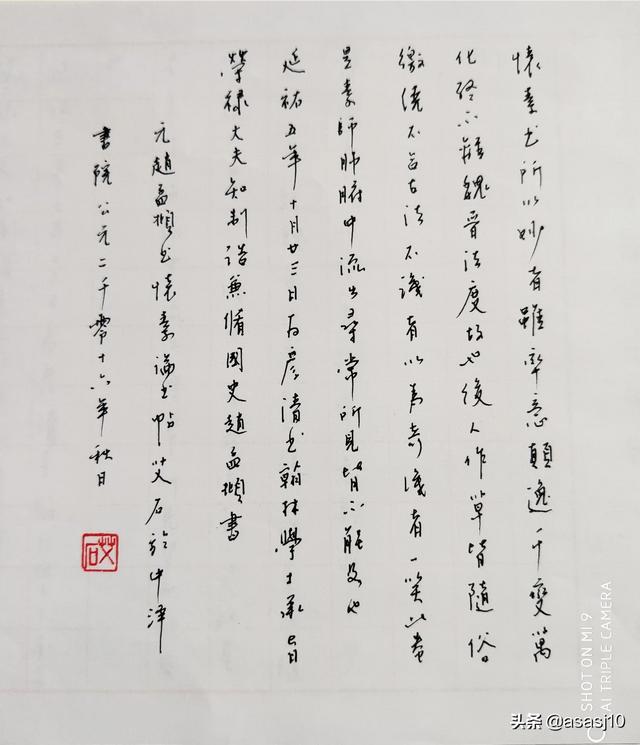 懷素書所以妙者雖率意顛逸千變萬
化終不離魏晉法度故也後人作草皆隨俗
繳繞不合古法不識者以為奇識者一笑此卷
是素師肺腑中流出尋常所見皆不能及也
延祐五年十月廿三日為彥清書翰林學士承旨
榮祿大夫知制誥兼脩國史趙孟頫書
元趙孟頫書懷素論書帖艾石於中澤
書院公元二千零十六年秋日
艾石
SHOT ON MI 9
AI TRIPLE CAMERA
头条 @asasj10